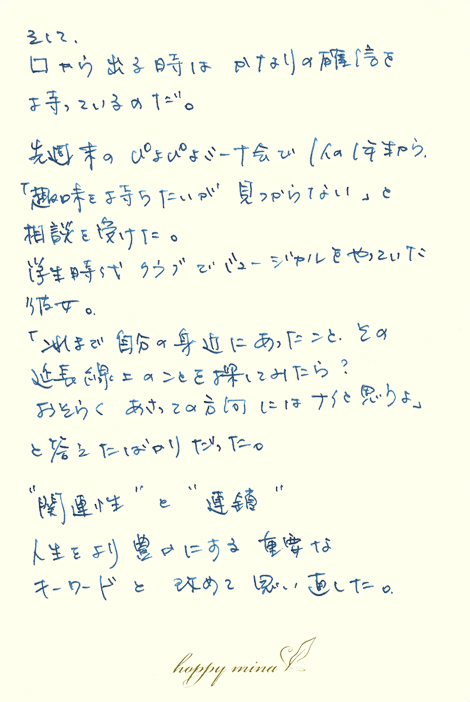 そして、
口から出る時は かなりの確信を
持っているのだ。
先週末の ぴよぴよビーナ会で 1人の1年生から、
「趣味を持ちたいが 見つからない」と
相談を受けた。
学生時代 クラブでビュージカルをやっていた
彼女。
「これまで自分の身近にあったこと、その
延長線上のことを探してみたら?
おそらく あさっての方向にはナイと思うよ」
と答えたばかりだった。
"関連性" と "連鎖"
人生をより豊かにする 重要な
キーワードと 改めて思い直した。
happy mina